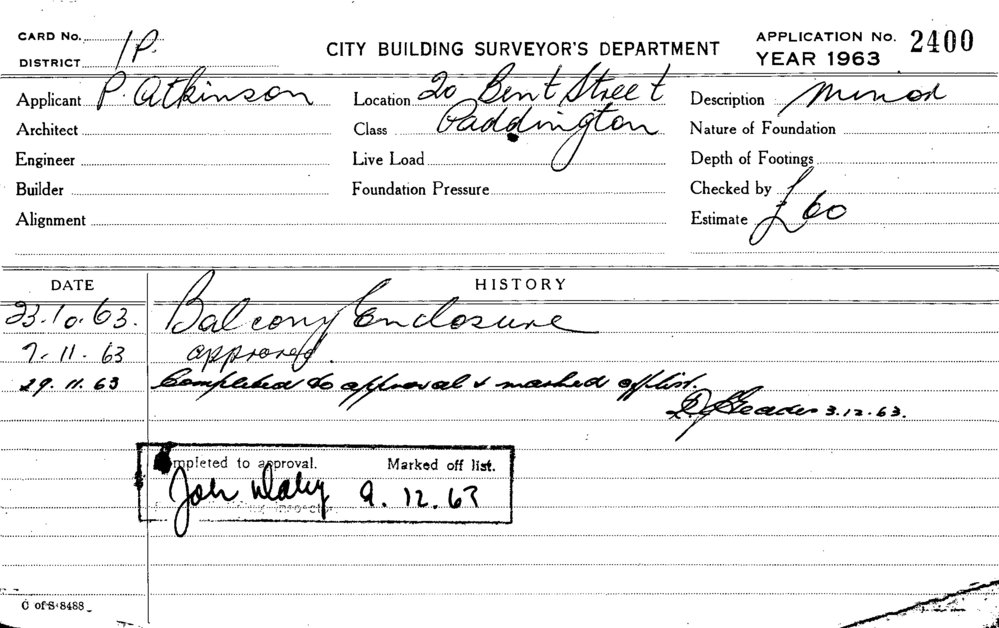 CARD No. 1P.
DISTRICT
CITY BUILDING SURVEYOR'S DEPARTMENT
APPLICATION No. 2400
YEAR 1963
Applicant P. Atkinson
Location 20 Bent Street
Description Minor
Architect
Class Paddington
Nature of Foundation
Engineer
Live Load
Depth of Footings
Builder
Foundation Pressure
Checked by
Alignment
Estimate £60
DATE HISTORY
23.10.63. Balcony Enclosure
7.11.63 approved.
29.11.63 Completed to approval & marked off list.
3.12.63.
Completed to approval. Marked off list.
9.12.63
C of S 8488